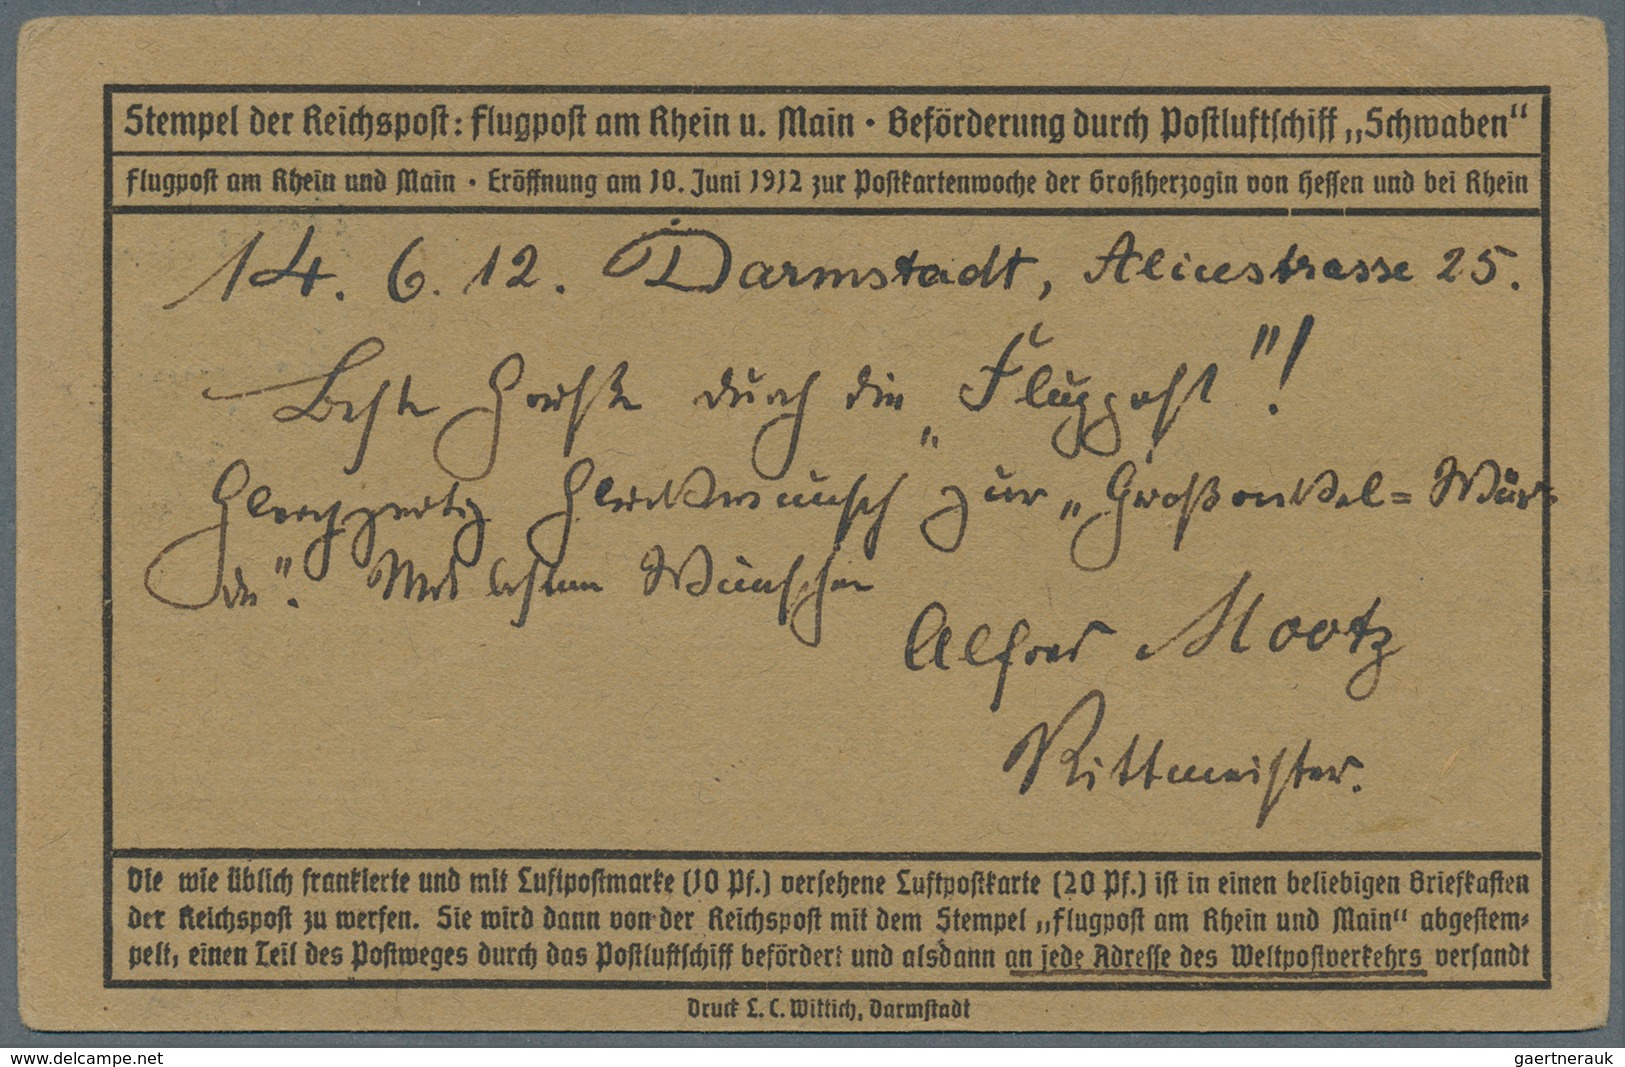 Stempel der Reichspost: Flugpost am Rhein u. Main · Beförderung durch Postluftschiff „Schwaben“
Flugpost am Rhein und Main · Eröffnung am 10. Juni 1912 zur Postkartenwoche der Großherzogin von Hessen und bei Rhein
14. 6. 12. Darmstadt, Alicestrasse 25.
Beste Grüße durch die „Flugpost“!
Gleichzeitig Glückwunsch zur „Großonkel=Wür-
de“. Mit besten Wünschen
Alfred Mootz
Rittmeister.
Die wie üblich frankierte und mit Luftpostmarke (10 Pf.) versehene Luftpostkarte (20 Pf.) ist in einen beliebigen Briefkasten
der Reichspost zu werfen. Sie wird dann von der Reichspost mit dem Stempel „Flugpost am Rhein und Main“ abgestem-
pelt, einen Teil des Postweges durch das Postluftschiff befördert und alsdann an jede Adresse des Weltpostverkehrs versandt
Druck L. C. Wittich, Darmstadt
www.delcampe.net
gaertnerauk